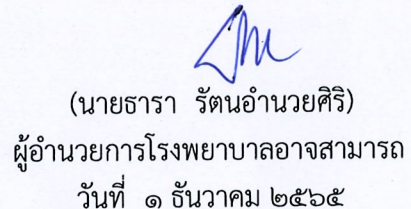 (นายธารา รัตนอำนวยศิริ)
ผู้อำนวยการโรงพยาบาลอาจสามารถ
วันที่ ๑ ธันวาคม ๒๕๖๕